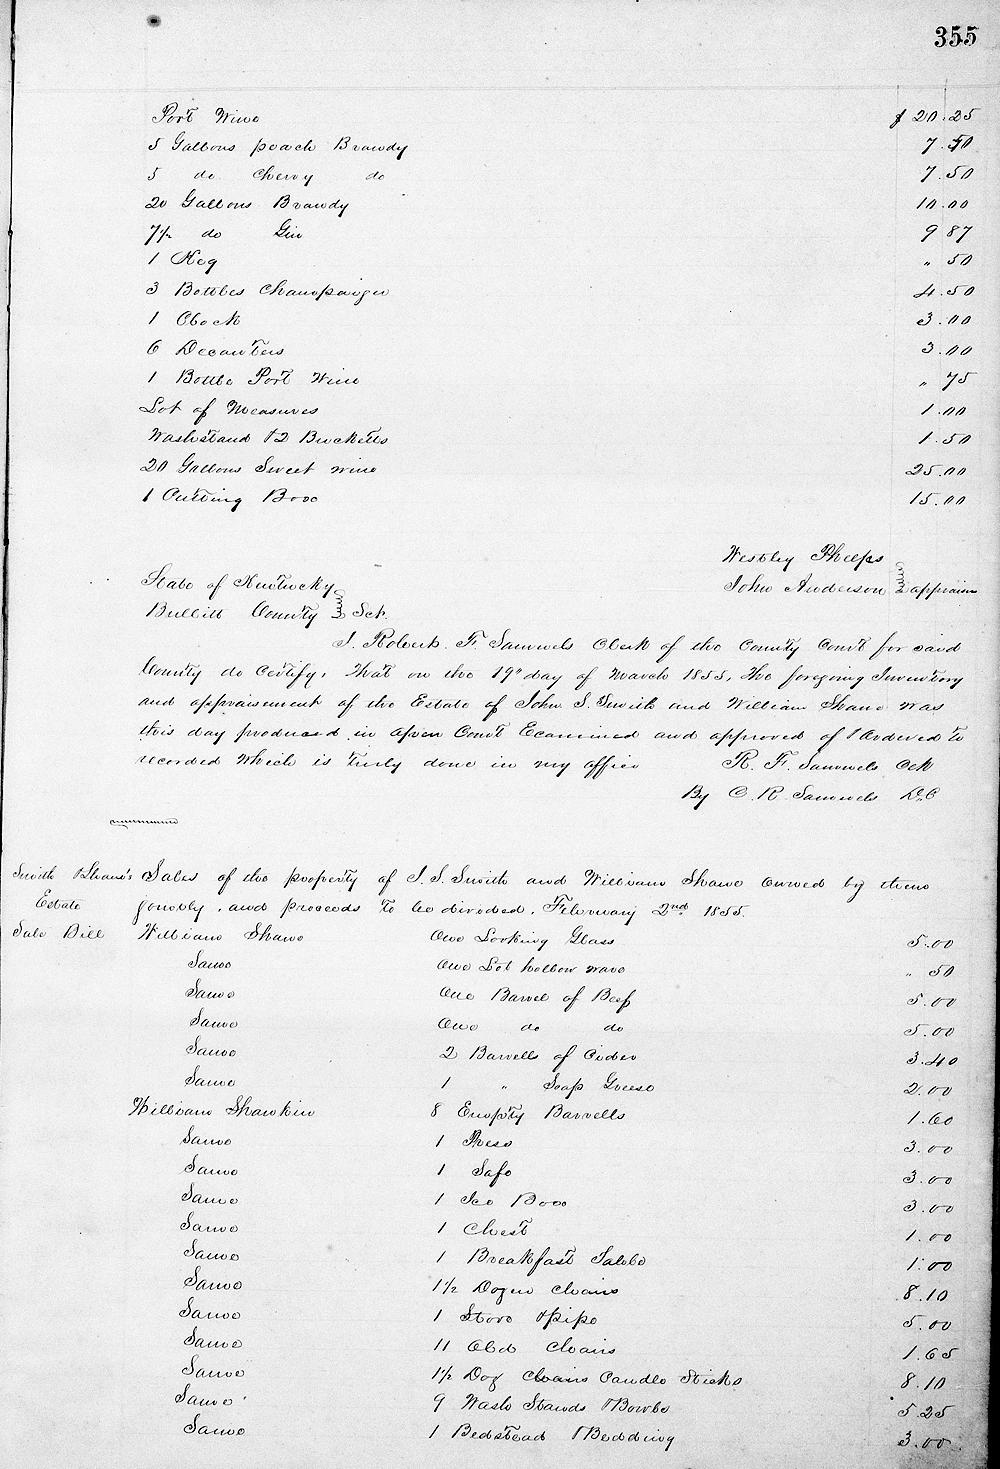 355
Port Wine $ 20.25
5 Gallons peach Brandy 7.50
5 do Cherry do 7.50
20 Gallons Brandy 10.00
7½ do Gin 9 87
1 Keg " 50
3 Bottles Champaign 4.50
1 Clock 3.00
6 Decanters 3.00
1 Bottle Port Wine " 75
Lot of Measures 1.00
Washstand & 2 Bucketts 1.50
20 Gallons Sweet wine 25.00
1 Cutting Box 15.00
Westley Phelps
John Anderson } appraisers
State of Kentucky
Bullitt County } Sct.
I. Robert. F. Samuels Clerk of the County Court for said
County do Certify, that on the 19" day of March 1855, the foregoing Inventory
and appraisement of the Estate of John S. Smith and William Shane was
this day produced in open Court Examined and approved of & Ordered to
recorded which is truly done in my office R. F. Samuels Clk
By C. R. Samuels D.C
Smith & Shane's Sales of the property of J. S. Smith and William Shane owned by them
Estate jointly, and proceeds to be divided. February 2nd 1855.
Sale Bill William Shane One Looking Glass 5.00
Same One Lot hollow ware " 50
Same One Barrel of Beef 5.00
Same One do do 5.00
Same 2 Barrells of Cider 3.40
Same 1 " Soap Greese 2.00
William Shankin 8 Empty Barrells 1.60
Same 1 Press 3.00
Same 1 Safe 3.00
Same 1 Ice Box 3.00
Same 1 Chest 1.00
Same 1 Breakfast Table 1.00
Same 1½ Dozen Chairs 8.10
Same 1 Stove & pipe 5.00
Same 11 Old Chairs 1.65
Same 1½ Doz Chairs Candle Sticks 8.10
Same 9 Wash Stands & Bowls 5.25
Same 1 Bedstead & Bedding 3.00